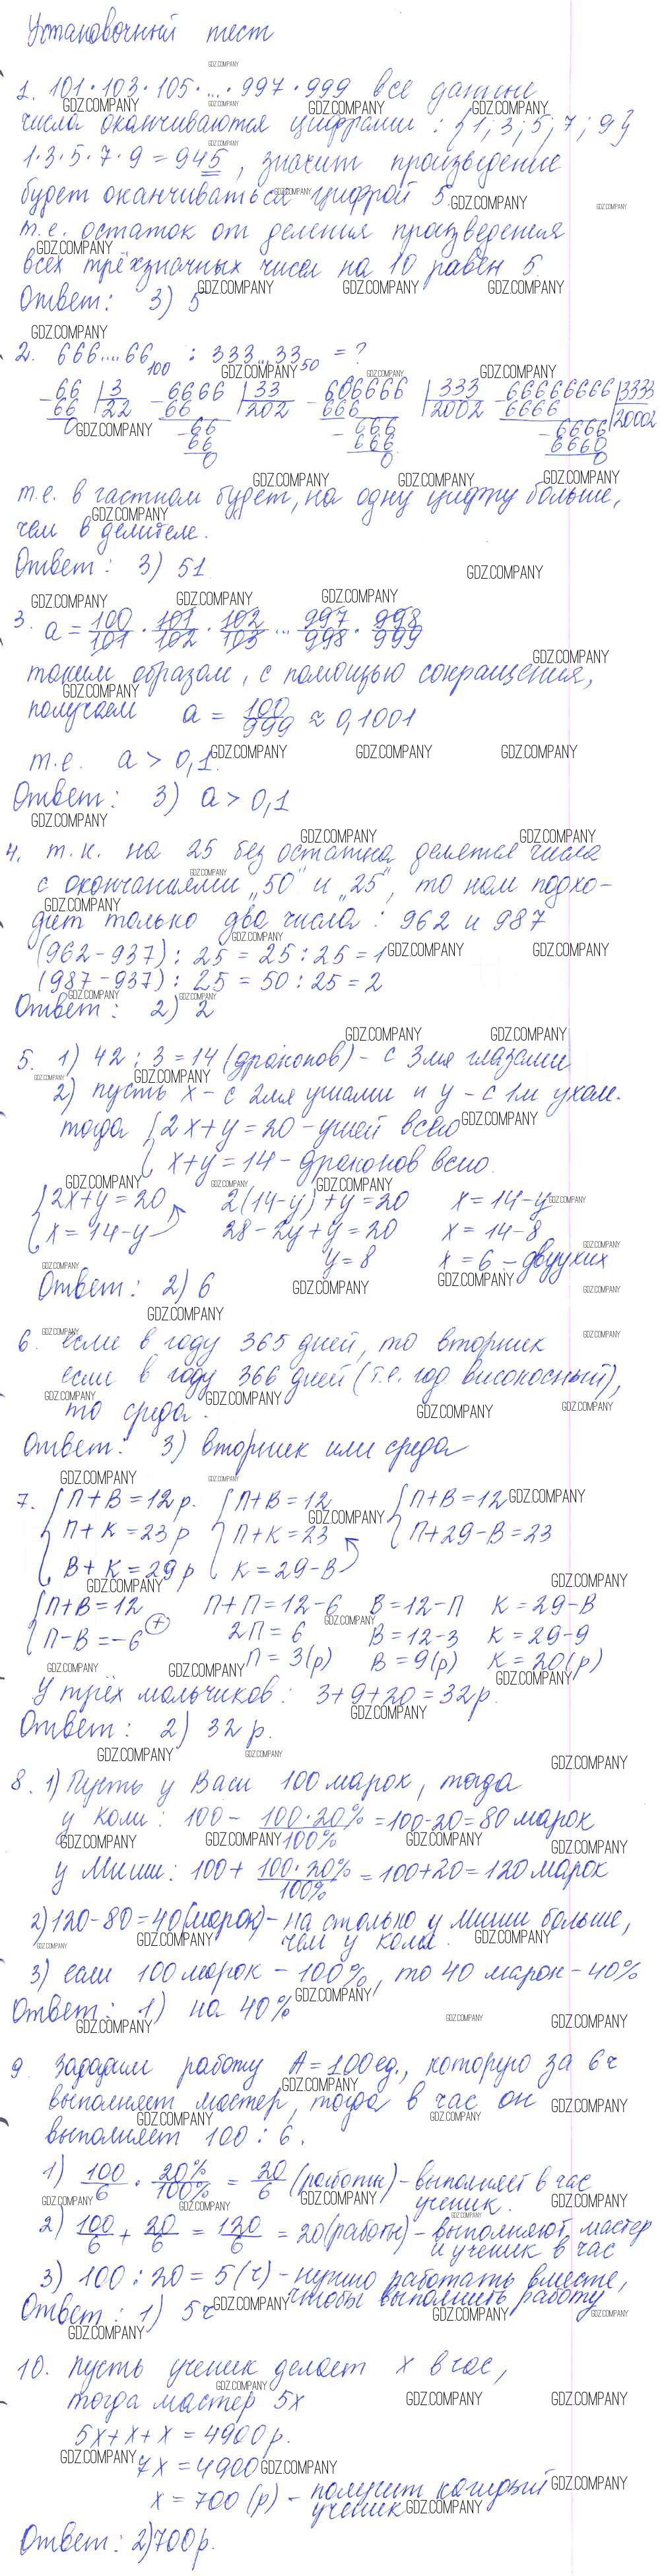 Установочный тест
1. 101·103·105·...·997·999 все данные
числа оканчиваются цифрами: {1; 3; 5; 7; 9}
1·3·5·7·9 = 945, значит произведение
будет оканчиваться цифрой 5.
т.е. остаток от деления произведения
всех трёхзначных чисел на 10 равен 5.
Ответ: 3) 5
2. 666....66₁₀₀ : 333...33₅₀ = ?
66 | 3 6666 | 33 666666 | 333 66666666 | 3333
66 | 22 66 | 202 666 | 2002 6666 | 20002
0 66 666 6666
66 666 6660
0 0 0
т.е. в частном будет, на одну цифру больше,
чем в делителе.
Ответ: 3) 51
3. a = 100/101 · 101/102 · 102/103 ... 997/998 · 998/999
таким образом, с помощью сокращения,
получаем a = 100/999 ≈ 0,1001
т.е. a > 0,1.
Ответ: 3) a > 0,1
4. т.к. на 25 без остатка делятся числа
с окончаниями „50" и „25", то нам подхо-
дит только два числа: 962 и 987
(962-937) : 25 = 25 : 25 = 1
(987-937) : 25 = 50 : 25 = 2
Ответ: 2) 2
5. 1) 42 : 3 = 14 (драконов) - с 3мя глазами
2) пусть x - с 2мя ушами и y - с 1м ухом.
тогда { 2x+y = 20 - ушей всего
x+y = 14 - драконов всего.
{ 2x+y = 20 2(14-y)+y = 20 x = 14-y
x = 14-y 28-2y+y = 20 x = 14-8
y = 8 x = 6 - двуухих
Ответ: 2) 6
6. если в году 365 дней, то вторник
если в году 366 дней (т.е. год високосный),
то среда.
Ответ: 3) вторник или среда
7. { П+В = 12 р. { П+В = 12 { П+В = 12
П+К = 23 р П+К = 23 П+29-В = 23
В+К = 29 р К = 29-В
{ П+В = 12 П+П = 12-6 В = 12-П К = 29-В
П-В = -6 (+) 2П = 6 В = 12-3 К = 29-9
П = 3(р) В = 9(р) К = 20(р)
У трёх мальчиков: 3+9+20 = 32 р.
Ответ: 2) 32 р.
8. 1) Пусть у Васи 100 марок, тогда
у Коли: 100 - 100·20%/100% = 100-20 = 80 марок
у Миши: 100 + 100·20%/100% = 100+20 = 120 марок
2) 120-80 = 40 (марок) - на столько у Миши больше,
чем у Коли.
3) если 100 марок - 100%, то 40 марок - 40%
Ответ: 1) на 40%
9. Зададим работу A = 100 ед., которую за 6 ч
выполняет мастер, тогда в час он
выполняет 100 : 6.
1) 100/6 · 20%/100% = 20/6 (работы) - выполняет в час
ученик.
2) 100/6 + 20/6 = 120/6 = 20 (работы) - выполняют мастер
и ученик в час
3) 100 : 20 = 5 (ч) - нужно работать вместе,
чтобы выполнить работу
Ответ: 1) 5ч
10. Пусть ученик делает x в час,
тогда мастер 5x
5x+x+x = 4900 р.
7x = 4900
x = 700 (р) - получит каждый
ученик
Ответ: 2) 700 р.